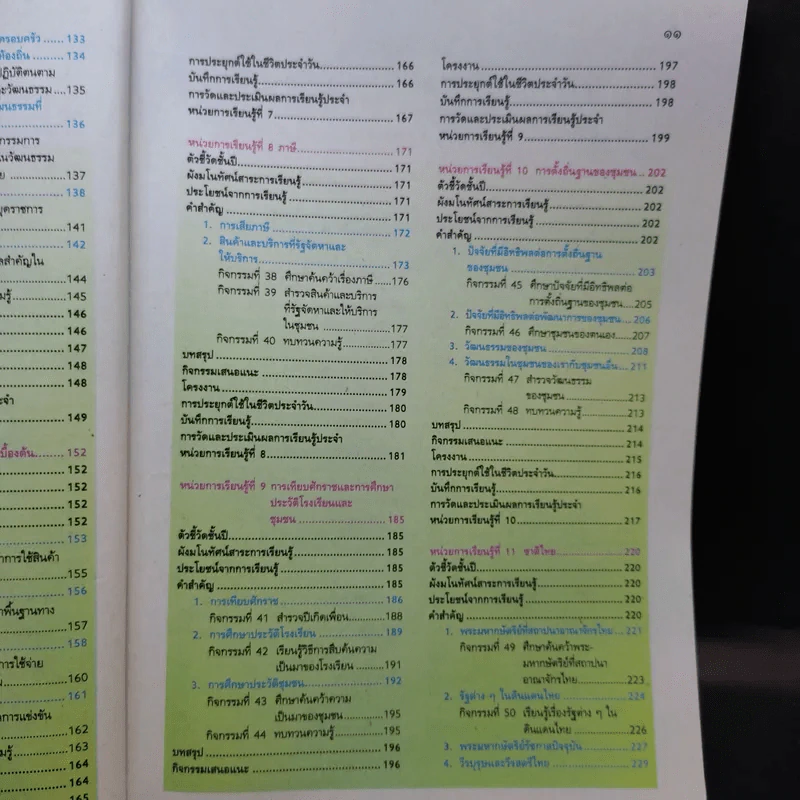 ครอบครัว ...... 133
ท้องถิ่น ........ 134
ปฏิบัติตนตาม
ะวัฒนธรรม .... 135
นธรรมที่
136
กรรมการ
นวัฒนธรรม
ย ................ 137
138
บุตราชการ
141
142
ลสำคัญใน
144
รู้ ................ 145
146
146
147
148
148
จำ
149
บื้องต้น......... 152
152
152
152
152
153
าการใช้สินค้า
155
156
พื้นฐานทาง
157
158
การใช้จ่าย
160
161
การแข่งขัน
162
รู้................ 163
164
164
165
๑๑
การประยุกต์ใช้ในชีวิตประจำวัน........ 166
บันทึกการเรียนรู้........ 166
การวัดและประเมินผลการเรียนรู้ประจำ
หน่วยการเรียนรู้ที่ 7 ........ 167
หน่วยการเรียนรู้ที่ 8 ภาษี ........ 171
ตัวชี้วัดชั้นปี........ 171
ผังมโนทัศน์สาระการเรียนรู้........ 171
ประโยชน์จากการเรียนรู้........ 171
คำสำคัญ ........ 171
1. การเสียภาษี ........ 172
2. สินค้าและบริการที่รัฐจัดหาและ
ให้บริการ........ 173
กิจกรรมที่ 38 ศึกษาค้นคว้าเรื่องภาษี ....176
กิจกรรมที่ 39 สำรวจสินค้าและบริการ
ที่รัฐจัดหาและให้บริการ
ในชุมชน ........ 177
กิจกรรมที่ 40 ทบทวนความรู้........ 177
บทสรุป ........ 178
กิจกรรมเสนอแนะ ........ 178
โครงงาน ........ 179
การประยุกต์ใช้ในชีวิตประจำวัน........ 180
บันทึกการเรียนรู้........ 180
การวัดและประเมินผลการเรียนรู้ประจำ
หน่วยการเรียนรู้ที่ 8 ........ 181
หน่วยการเรียนรู้ที่ 9 การเทียบศักราชและการศึกษา
ประวัติโรงเรียนและ
ชุมชน ........ 185
ตัวชี้วัดชั้นปี........ 185
ผังมโนทัศน์สาระการเรียนรู้........ 185
ประโยชน์จากการเรียนรู้........ 185
คำสำคัญ ........ 185
1. การเทียบศักราช ........ 186
กิจกรรมที่ 41 สำรวจปีเกิดเพื่อน........188
2. การศึกษาประวัติโรงเรียน ........ 189
กิจกรรมที่ 42 เรียนรู้วิธีการสืบค้นความ
เป็นมาของโรงเรียน ........ 191
3. การศึกษาประวัติชุมชน........ 192
กิจกรรมที่ 43 ศึกษาค้นคว้าความ
เป็นมาของชุมชน ........195
กิจกรรมที่ 44 ทบทวนความรู้........195
บทสรุป ........ 196
กิจกรรมเสนอแนะ ........ 196
โครงงาน ........ 197
การประยุกต์ใช้ในชีวิตประจำวัน........ 198
บันทึกการเรียนรู้........ 198
การวัดและประเมินผลการเรียนรู้ประจำ
หน่วยการเรียนรู้ที่ 9........ 199
หน่วยการเรียนรู้ที่ 10 การตั้งถิ่นฐานของชุมชน .. 202
ตัวชี้วัดชั้นปี........ 202
ผังมโนทัศน์สาระการเรียนรู้........ 202
ประโยชน์จากการเรียนรู้........ 202
คำสำคัญ ........ 202
1. ปัจจัยที่มีอิทธิพลต่อการตั้งถิ่นฐาน
ของชุมชน ........ 203
กิจกรรมที่ 45 ศึกษาปัจจัยที่มีอิทธิพลต่อ
การตั้งถิ่นฐานของชุมชน.....205
2. ปัจจัยที่มีอิทธิพลต่อพัฒนาการของชุมชน ... 206
กิจกรรมที่ 46 ศึกษาชุมชนของตนเอง.....207
3. วัฒนธรรมของชุมชน ........ 208
4. วัฒนธรรมในชุมชนของเรากับชุมชนอื่น... 211
กิจกรรมที่ 47 สำรวจวัฒนธรรม
ของชุมชน ........213
กิจกรรมที่ 48 ทบทวนความรู้........213
บทสรุป ........ 214
กิจกรรมเสนอแนะ ........ 214
โครงงาน ........ 215
การประยุกต์ใช้ในชีวิตประจำวัน........ 216
บันทึกการเรียนรู้........ 216
การวัดและประเมินผลการเรียนรู้ประจำ
หน่วยการเรียนรู้ที่ 10........ 217
หน่วยการเรียนรู้ที่ 11 ชาติไทย........ 220
ตัวชี้วัดชั้นปี........ 220
ผังมโนทัศน์สาระการเรียนรู้........ 220
ประโยชน์จากการเรียนรู้........ 220
คำสำคัญ ........ 220
1. พระมหากษัตริย์ที่สถาปนาอาณาจักรไทย .... 221
กิจกรรมที่ 49 ศึกษาค้นคว้าพระ-
มหากษัตริย์ที่สถาปนา
อาณาจักรไทย ........223
2. รัฐต่าง ๆ ในดินแดนไทย ........ 224
กิจกรรมที่ 50 เรียนรู้เรื่องรัฐต่าง ๆ ใน
ดินแดนไทย ........226
3. พระมหากษัตริย์รัชกาลปัจจุบัน ........ 227
4. วีรบุรุษและวีรสตรีไทย ........ 229